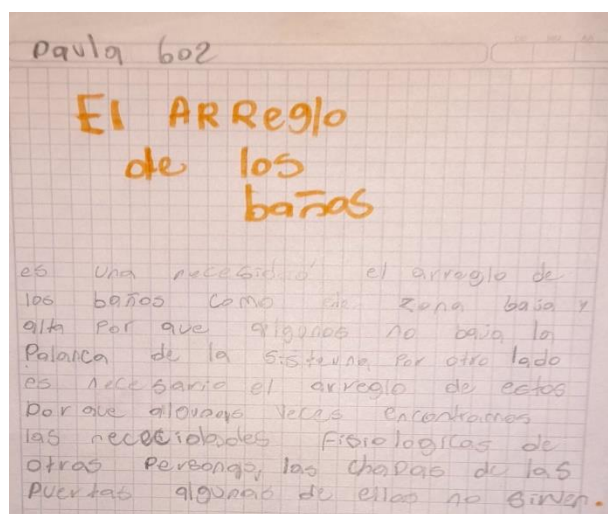 Paula 602
El ARReglo
de los
baños
es una necesidad el arreglo de
los baños como de zona baja y
alta Por que algunos no baja la
Palanca de la sisterna Por otro lado
es necesario el arreglo de estos
Porque algunas veces encontramos
las nececidades Fisiologicas de
otras Personas, las chapas de las
Puertas algunas de ellas no sirven.